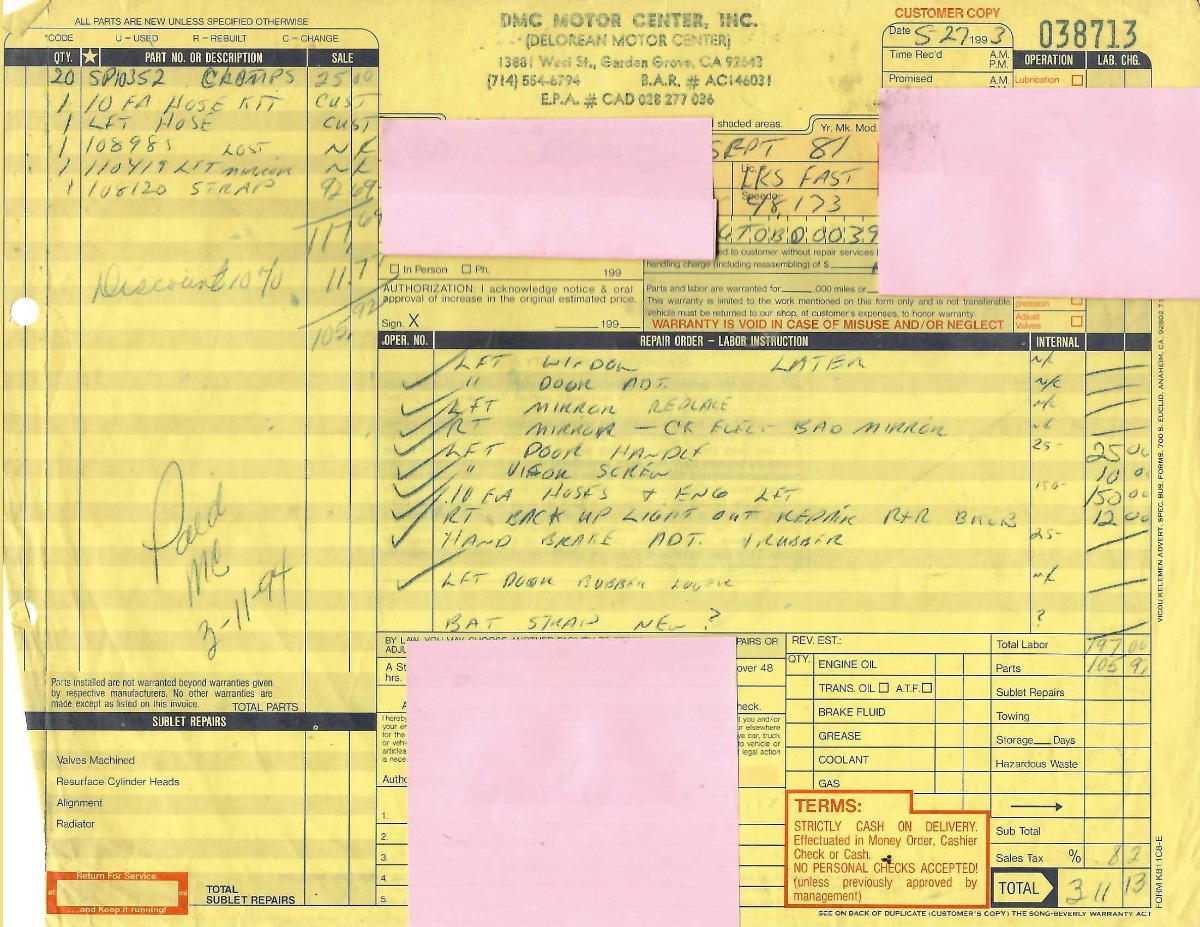 ALL PARTS ARE NEW UNLESS SPECIFIED OTHERWISE
*CODE U – USED R – REBUILT C – CHANGE
QTY. ★ PART NO. OR DESCRIPTION SALE
20 SP10352 CLAMPS 25 00
1 10 FA HOSE KIT CUST
1 LFT HOSE CUST
1 108985 LOST N/C
1 110419 LFT mirror N/C
1 108120 STRAP 92 69
117 69
Discount 10% 11.77
105,92
Paid
MC
3-11-94
Parts installed are not warranted beyond warranties given
by respective manufacturers. No other warranties are
made except as listed on this invoice. TOTAL PARTS
SUBLET REPAIRS
Valves Machined
Resurface Cylinder Heads
Alignment
Radiator
Return For Service
at mi
...and Keep it running!
TOTAL
SUBLET REPAIRS
DMC MOTOR CENTER, INC.
(DELOREAN MOTOR CENTER)
13881 West St., Garden Grove, CA 92643
(714) 554-6794 B.A.R. # AC146031
E.P.A. # CAD 028 277 036
CUSTOMER COPY
038713
Date 5-27 1993
Time Rec'd A.M.
P.M.
Promised A.M.
OPERATION LAB. CHG.
Lubrication
shaded areas.
Yr. Mk. Mod.
SEPT 81
Lic.
LKS FAST
Speedo
48,173
In Person Ph. 199
AUTHORIZATION: I acknowledge notice & oral
approval of increase in the original estimated price.
Sign. X 199
ed to customer without repair services
handling charge (including reassembling) of $
Parts and labor are warranted for ,000 miles or
This warranty is limited to the work mentioned on this form only and is not transferable.
Vehicle must be returned to our shop, at customer's expenses, to honor warranty.
WARRANTY IS VOID IN CASE OF MISUSE AND/OR NEGLECT
pression
Adjust
Valves
OPER. NO. REPAIR ORDER – LABOR INSTRUCTION INTERNAL
LFT WINDOW LATER N/C
" DOOR ADT. N/C
LFT MIRROR REPLACE N/C
RT MIRROR – CK ELEC- BAD MIRROR N/C
LFT DOOR HANDLE 25- 25 00
" VISOR SCREW 10 00
10 FA HOSES & ENG LFT 150- 150 00
RT BACK UP LIGHT OUT REPAIR R+R BULB 12 00
HAND BRAKE ADT. RUBBER 25-
LFT DOOR RUBBER N/C
BAT STRAP NEW ? ?
BY LAW, YOU MAY CHOOSE ANOTHER FACILITY TO PAIRS OR
ADJU
A St over 48
hrs.
heck.
I hereby t you and/or
your er or elsewhere
for the e car, truck
or vehi to vehicle or
articles legal action
is nece
Autho
1.
2.
3.
4.
5.
REV. EST.:
QTY. ENGINE OIL
TRANS. OIL A.T.F.
BRAKE FLUID
GREASE
COOLANT
GAS
TERMS:
STRICTLY CASH ON DELIVERY.
Effectuated in Money Order, Cashier
Check or Cash.
NO PERSONAL CHECKS ACCEPTED!
(unless previously approved by
management)
Total Labor 197 00
Parts 105 92
Sublet Repairs
Towing
Storage Days
Hazardous Waste
Sub Total
Sales Tax % 8.2
TOTAL 311 13
SEE ON BACK OF DUPLICATE (CUSTOMER'S COPY) THE SONG-BEVERLY WARRANTY ACT
VICOU/KELEMEN ADVERT. SPEC. BUS. FORMS, 700 S. EUCLID, ANAHEIM, CA. 92802
FORM K811C8-E